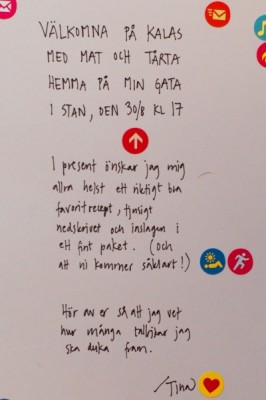 VÄLKOMNA PÅ KALAS
MED MAT OCH TÅRTA
HEMMA PÅ MIN GATA
I STAN, DEN 30/8 KL 17
I present önskar jag mig
allra helst ett riktigt bra
favoritrecept, fjusigt
nedskrivet och inslagen i
ett fint paket. (och
att ni kommer såklart!)
Hör av er så att jag vet
hur många tallrikar jag
ska duka fram.
/Tina